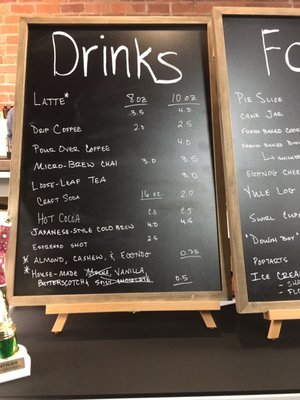 Drinks
8 oz 10 oz
Latte* 3.5 4.0
Drip Coffee 2.0 2.5
Pour Over Coffee 4.0
Micro-Brew Chai 3.0 3.5
Loose-Leaf Tea 3.0
Craft Soda 16 oz. 2.0
Hot Cocoa 2.0 2.5
Japanese-Style Cold Brew 4.0 4.5
Espresso Shot 2.5
* Almond, Cashew, & Eggnog 0.75
* House-Made Mocha, Vanilla,
Butterscotch & 0.5
Fo
Pie Slice
Cake Jar
Fresh Baked Cook
Fresh-Baked
Eggnog Chee
Yule Log
Swirl Cup
"Dough Boy"
Poptarts
Ice Cream
- Sha
- Flo